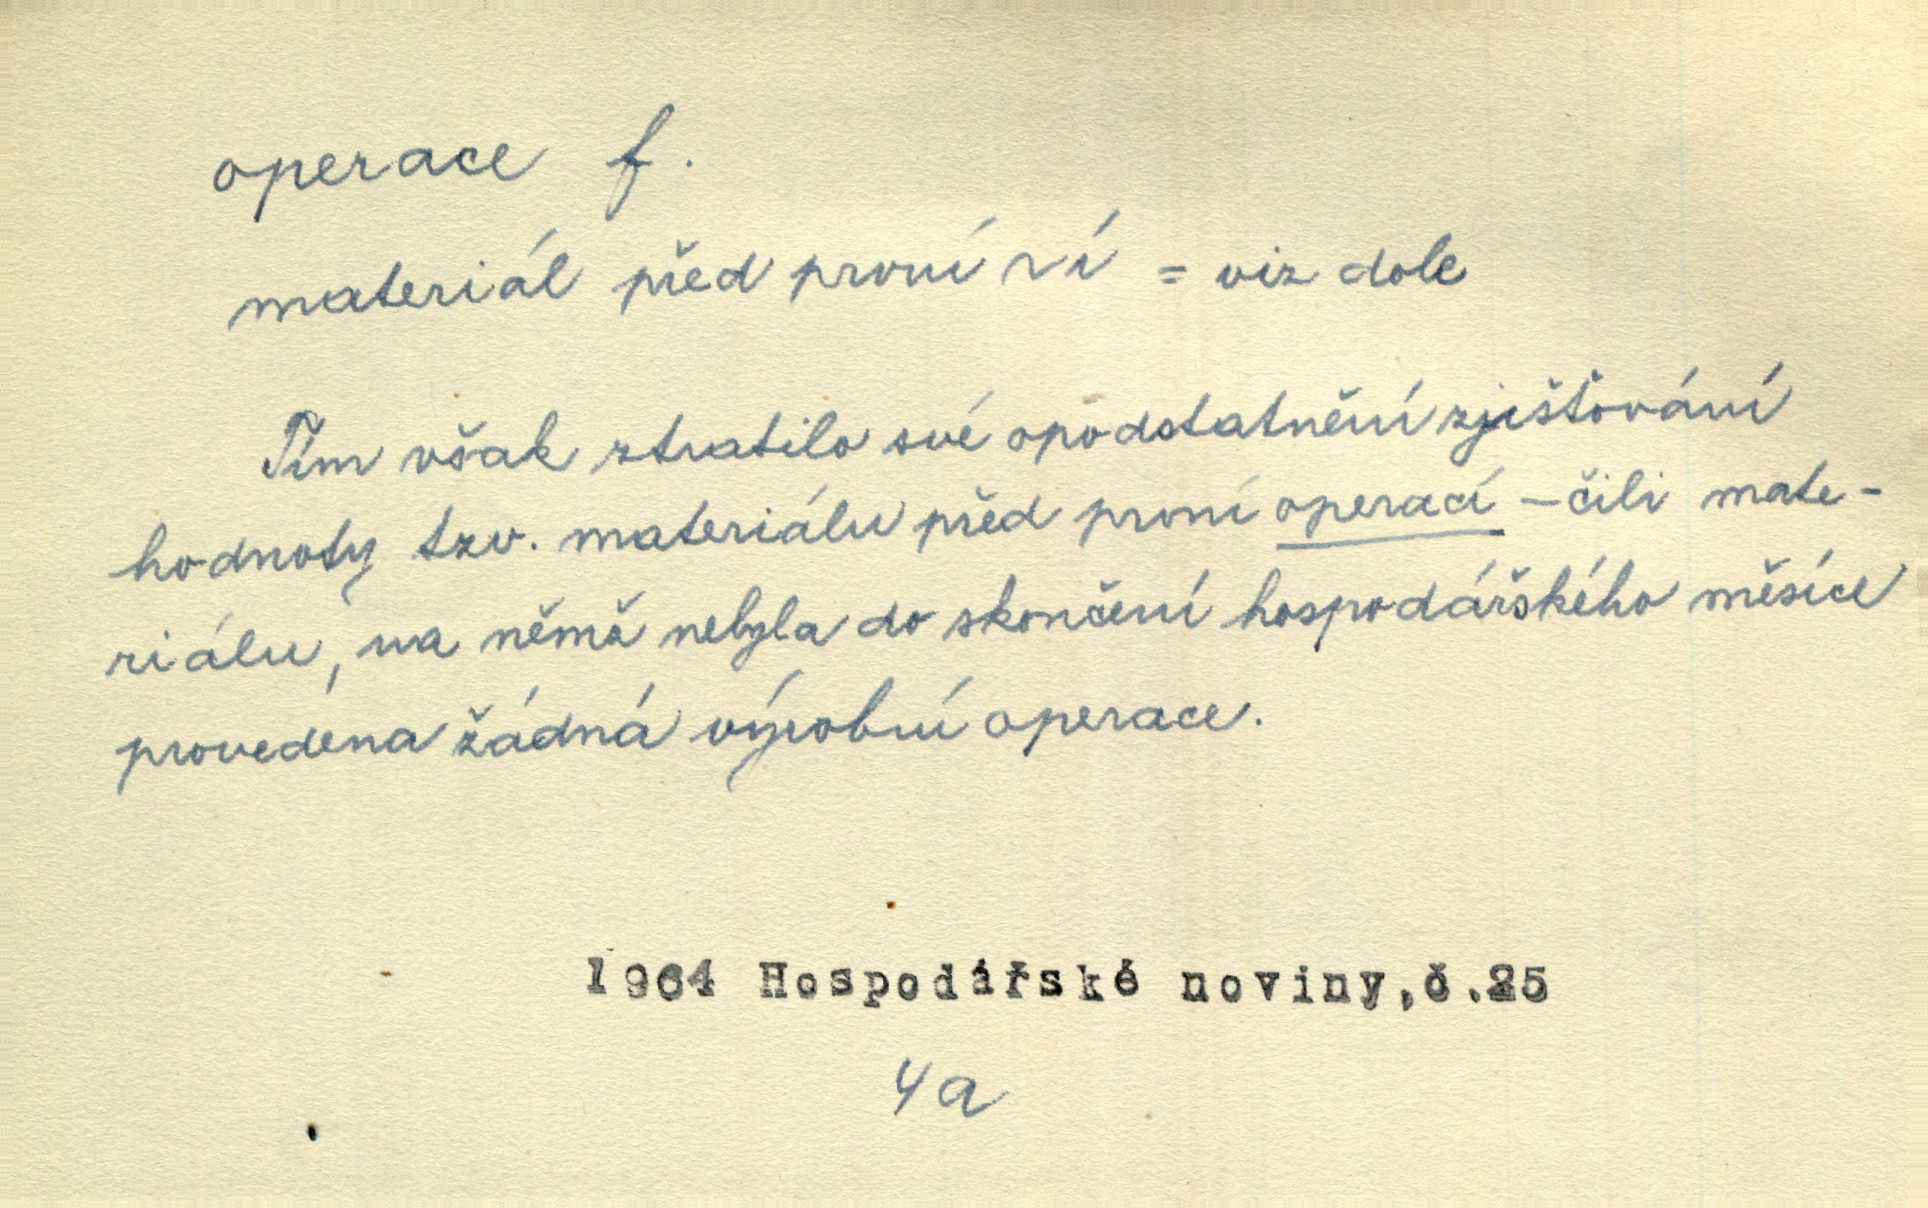 operace f.
materiál před první ~í = viz dole
Tím však ztratilo své opodstatnění zjišťování
hodnoty tzv. materiálu před první operací – čili mate-
riálu, na němž nebyla do skončení hospodářského měsíce
provedena žádná výrobní operace.
1964 Hospodářské noviny,č.25
4a